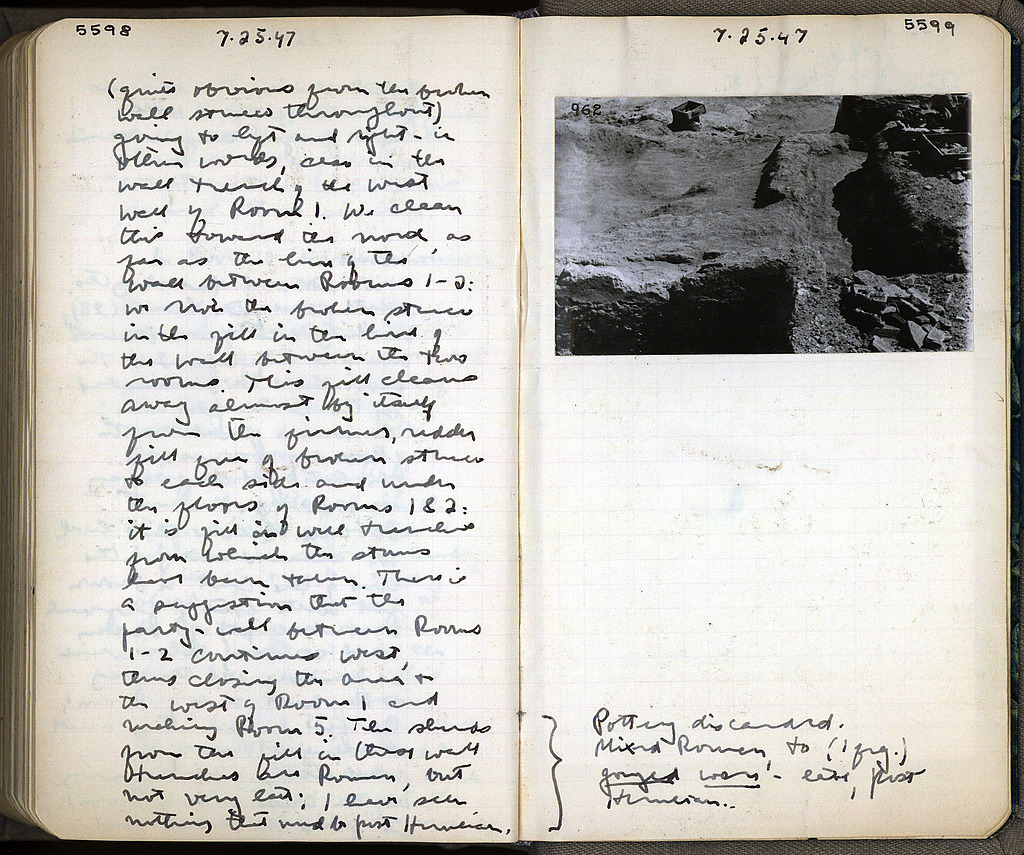 5598
7.25.47
(quite obvious from the broken
wall stucco throughout)
going to left and right - in
other words, clear in the
wall trench of the west
wall of Room 1. We clean
this toward the north, as
far as the line of the
wall between Rooms 1-2:
we note the broken stucco
in the fill in the line of
the wall between the two
rooms. This fill cleans
away almost by itself
from the firmer, redder
fill free of broken stucco
to each side and under
the floors of Rooms 1 & 2:
it is fill in wall trenches
from which the stones
have been taken. There is
a suggestion that the
party-wall between Rooms
1-2 continues west,
thus closing the area to
the west of Room 1 and
making Room 5. The sherds
from the fill in these wall
trenches are Roman, but
not very late; I have seen
nothing that need be post Herulian.
5599
7.25.47
962
Pottery discarded.
Mixed Roman, to (1 frg.)
gouged ware - late, post
Herulian..